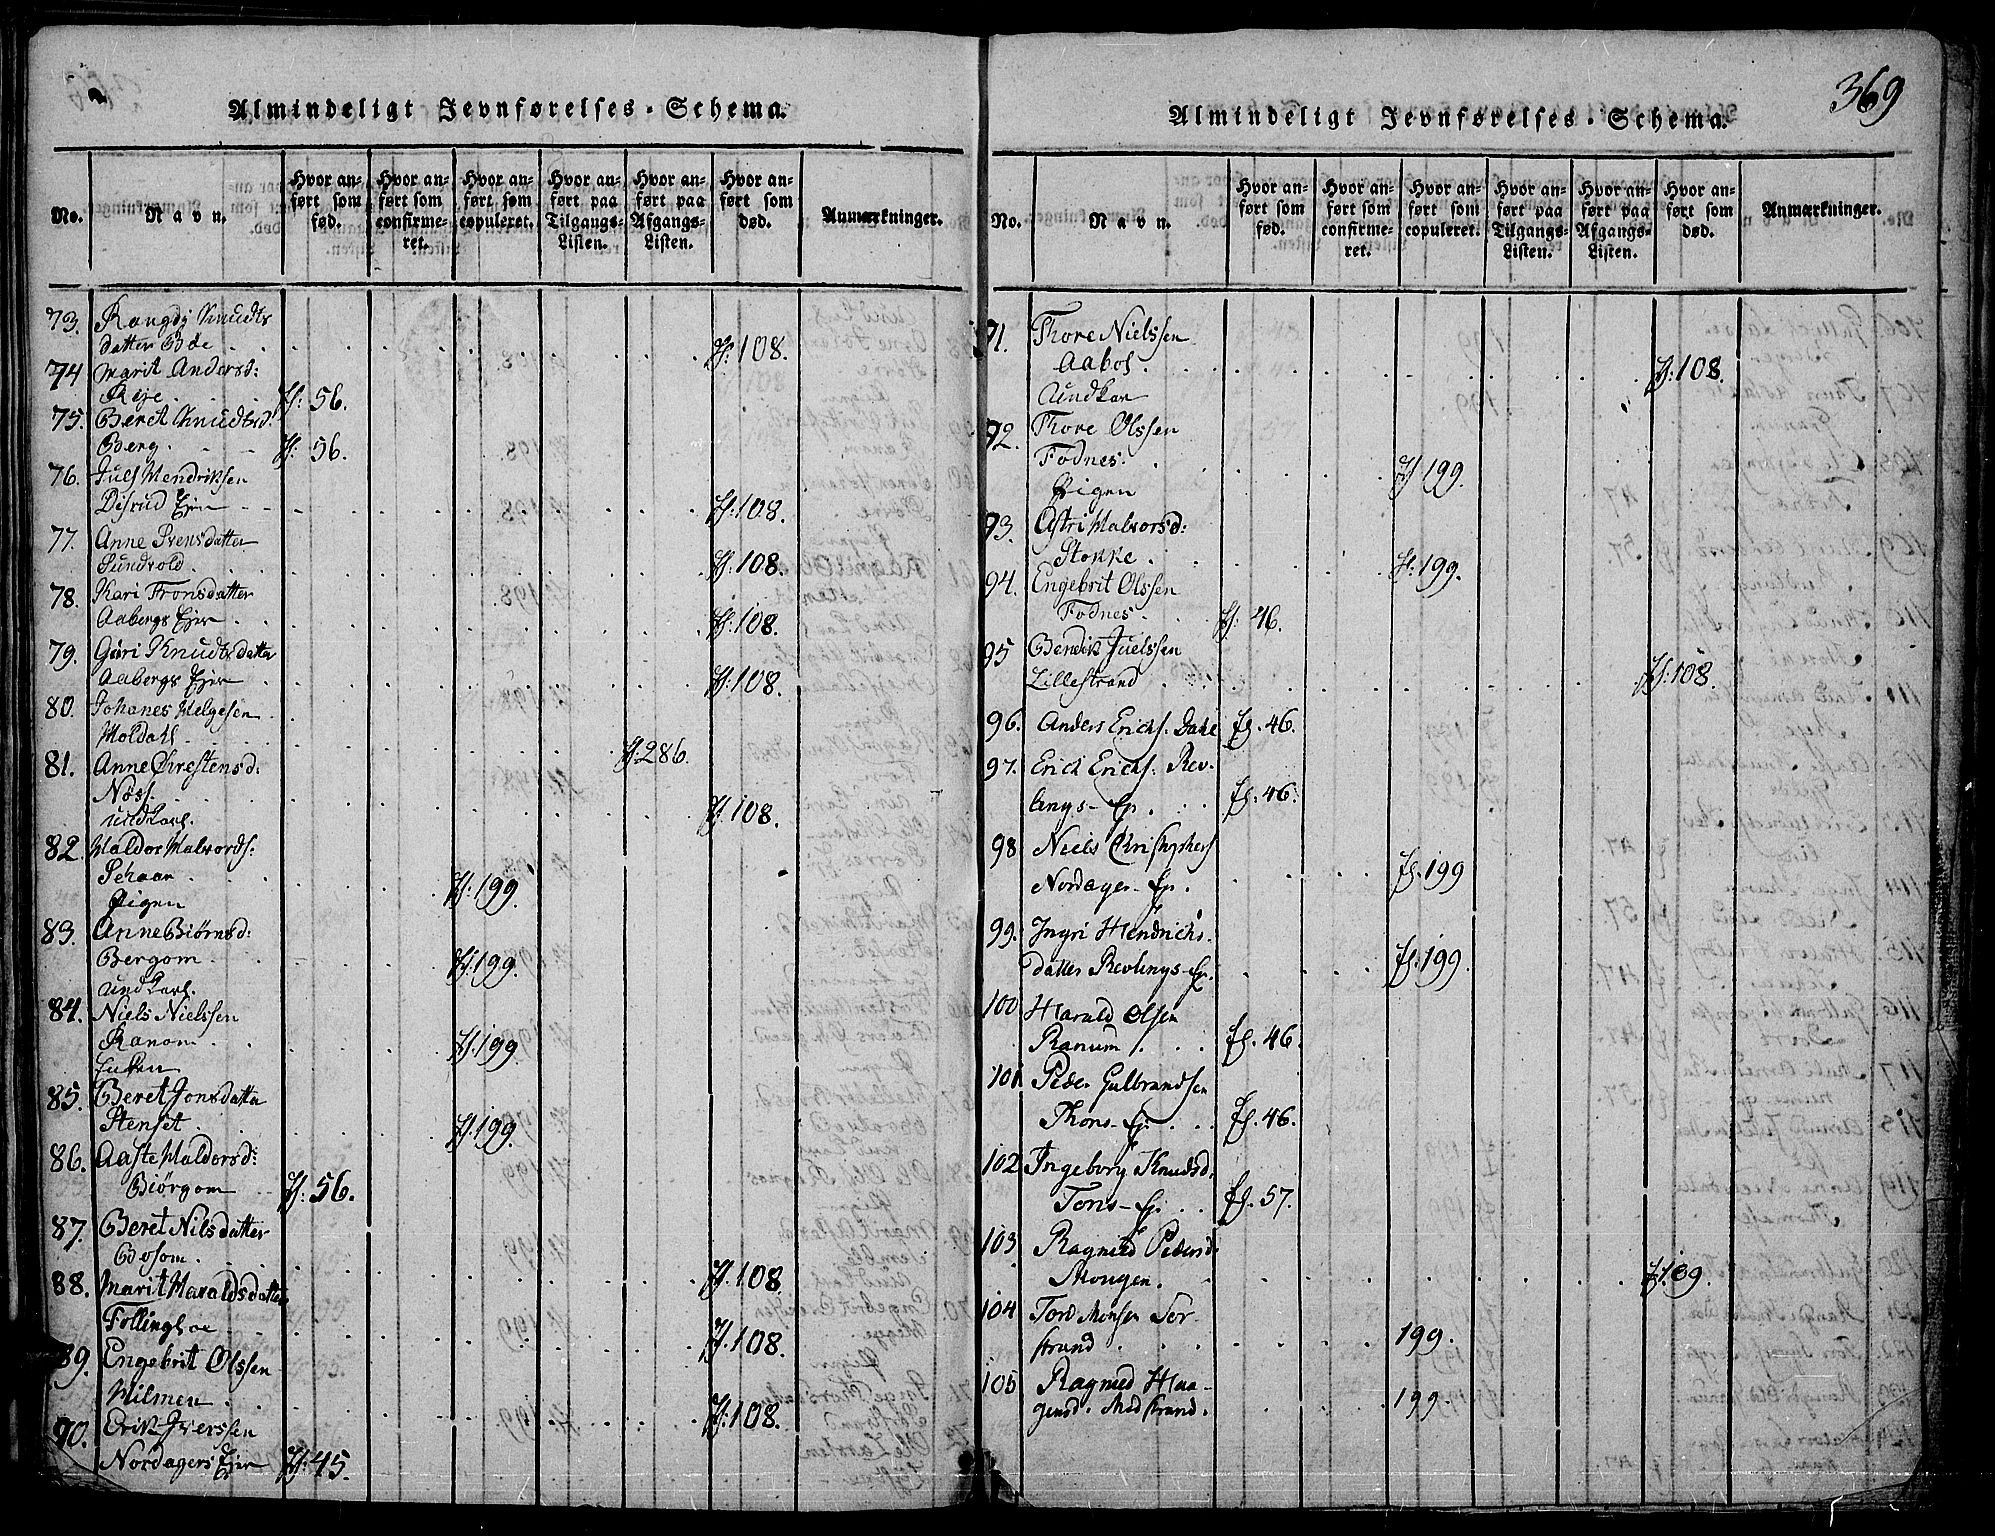 Almindeligt Jevnførelses-Schema.
No.
Navn.
Hvor anført som fød.
Hvor anført som confirmeret.
Hvor anført som copuleret.
Hvor anført paa Tilgangs-Listen.
Hvor anført paa Afgangs-Listen.
Hvor anført som død.
Anmærkninger.
73. Rangdj Knudts
datter Bøe . . f: 108.
74 Marit Andersd:
Røe . f: 56.
75. Beret Knudtsd.
Berg. f: 56.
76. Juels Hendriksen
Disrud Ejer f: 108.
77. Anne Svensdatter
Sundvold. f: 108.
78. Kari Tronsdatter
Aabergs Ejer f: 108.
79. Guri Knudtsdatter
Aabergs Ejer f: 108.
80. Johanes Helgesen
Moldahl. f: 286.
81. Anne Christensd:
Nøss.
undkarl. f: 108.
82. Haldor Halvords:
Schaar
Pigen f: 199.
83. Anne Biørnsd:
Bergom
undkarl. f: 199.
84. Niels Nielssen
Ranom f: 199
Enken
85. Beret Jonsdatter
Stenset f: 199.
86. Aaste Haldorsd:
Biørgom f: 56.
87. Beret Nilsdatter
Bøsom. f: 108.
88. Marit Haraldsdatter
Follingloe f: 108.
89. Engebrit Olssen
Hilmen f: 108.
90. Erik Iverssen
Nordagers Ejer f: 45.
369
Almindeligt Jevnførelses-Schema.
No.
Navn.
Hvor anført som fød.
Hvor anført som confirmeret.
Hvor anført som copuleret.
Hvor anført paa Tilgangs-Listen.
Hvor anført paa Afgangs-Listen.
Hvor anført som død.
Anmærkninger.
91. Thore Nielssen
Aabol f: 108.
Undkar
92. Thore Olssen
Fodnes. f 199.
Pigen
93. Astri Halvorsd:
Stokke f: 199.
94. Engebrit Olssen
Fodnes. f: 46.
95 Bendik Juelssen
Lillestrand f: 108.
96. Anders Erichs. Dahl f. 46.
97. Erich Erichs: Rev-
lings-Ejr. f. 46.
98 Niels Christophers
Nordager-Ejr. f. 199
99. Ingri Hendrichs-
datter Revlings-Ejr. f. 199.
100 Harald Olsen
Ranum f. 46.
101 Peder Gulbrandsen
Thons-Ejr. f. 46.
102 Ingeborg Knudsd.
Tons-Ejr. f. 57.
103 Ragnild Pedersd.
Mougen. f 109.
104 Tord Monsen Sør-
strand 199.
105 Ragnild Haa-
gensd. Midstrand. 199.